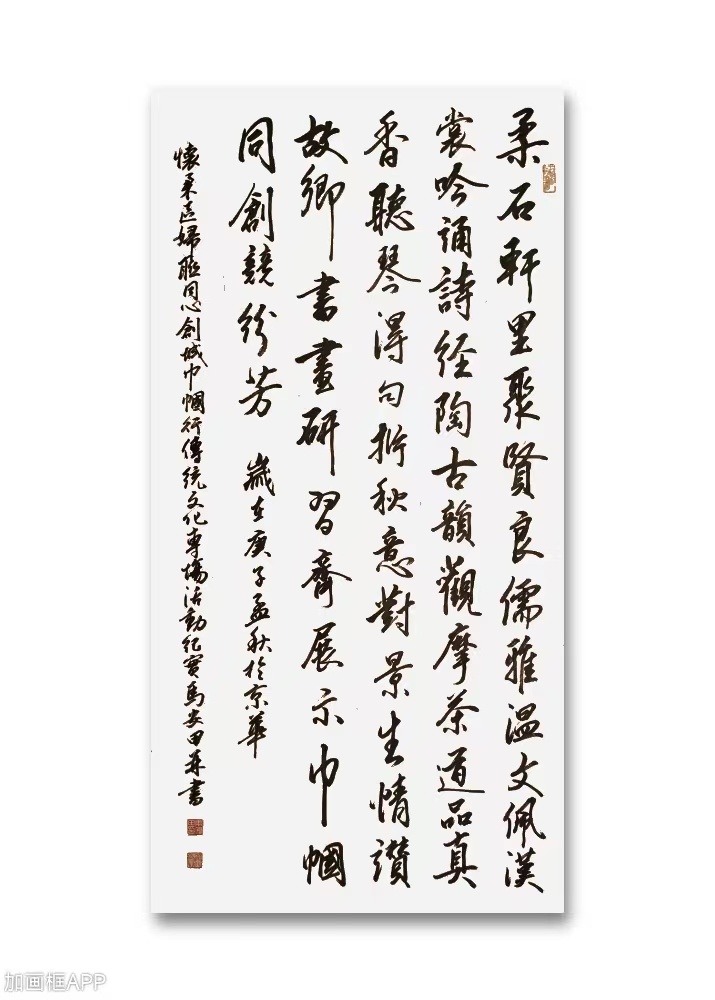 柔石軒里聚賢良儒雅温文佩漢
裳吟誦詩经陶古韻觀摩茶道品真
香聽琴得句折秋意對景生情讃
故鄉書畫研習齊展示巾帼
同創競纷芳　歲在庚子孟秋於京華
懷柔区婦联同心創城巾帼行傳统文化專塲活動纪實馬安田并書
加画框APP